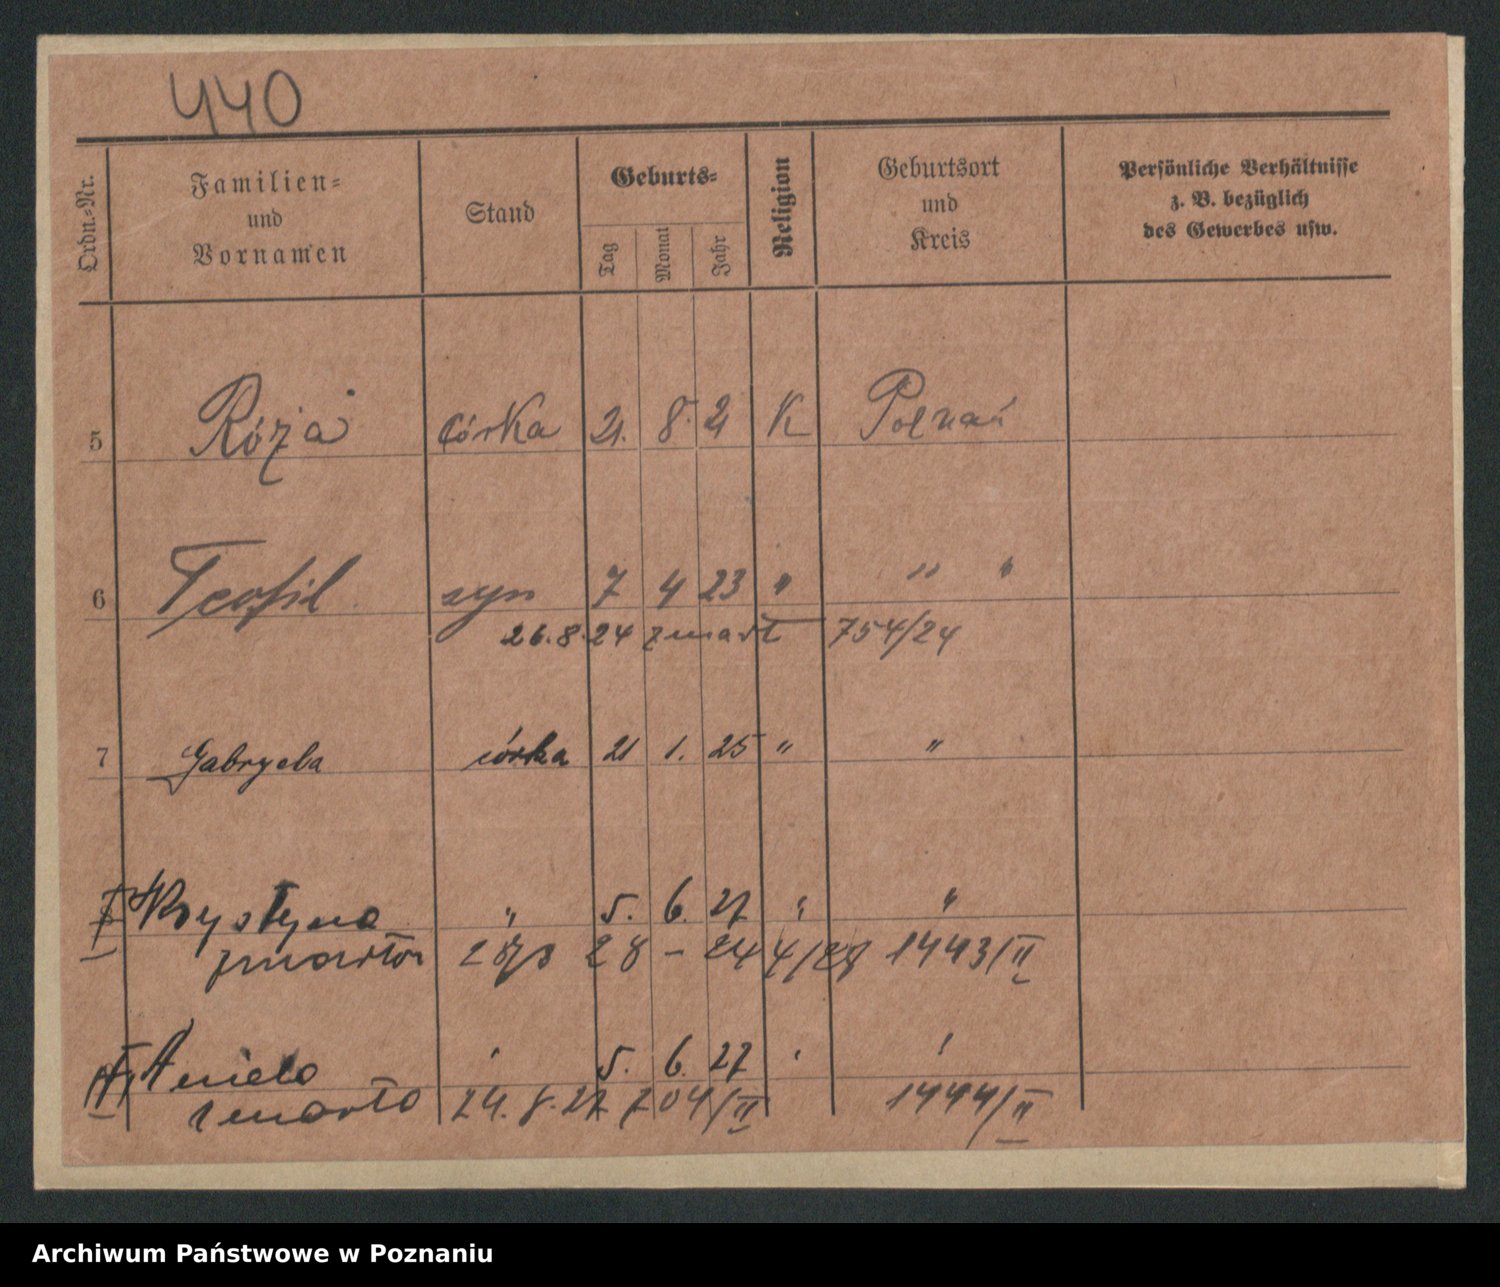 440
Ordn.=Nr.
Familien=
und
Vornamen
Stand
Geburts=
Tag
Monat
Jahr
Religion
Geburtsort
und
Kreis
Persönliche Verhältnisse
z. B. bezüglich
des Gewerbes usw.
5 Róża córka 21. 8. 21 K Poznań
6 Teofil syn 7 4 23 " " "
26.8.24 zmarł 754/24
7 Gabryela córka 21 1. 25 " "
I Krystyna " 5. 6. 27 " "
zmarła 28 - 1443/II
II Aniela " 5. 6. 27 " "
zmarła 24. 8. 27 704/II 1444/II
Archiwum Państwowe w Poznaniu